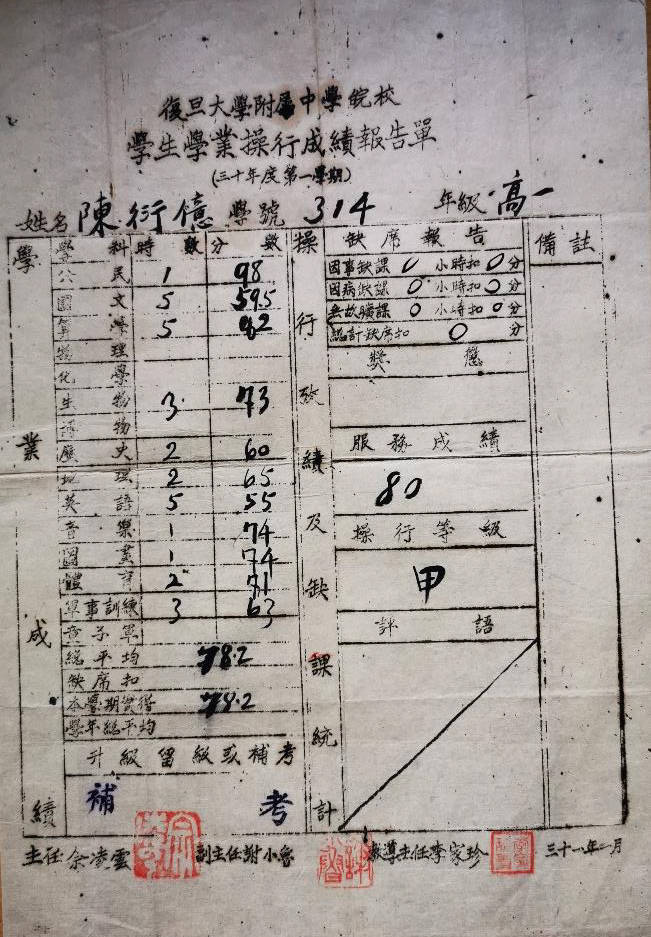 復旦大學附屬中學皖校
學生學業操行成績報告單
(三十年度第一學期)
姓名 陳衍億 學號 314 年級 高一
學業成績
學科 時數 分數
公民 1 98
國文 5 59.5
算學 5 92
物理
化學
生物 3 73
博物
歷史 2 60
地理 2 65
英語 5 55
音樂 1 74
圖畫 1 74
體育 2 71
軍事訓練 3 63
童子軍
總平均 78.2
缺席扣
本學期實得 78.2
學年總平均
升級留級或補考
補考
操行成績及缺課統計
缺席報告
因事缺課 0 小時扣 0 分
因病缺課 0 小時扣 0 分
無故曠課 0 小時扣 0 分
總計缺席扣 0 分
獎懲
服務成績
80
操行等級
甲
評語
備註
主任 余凌雲 副主任 謝小魯 教導主任 李家珍 三十一年一月